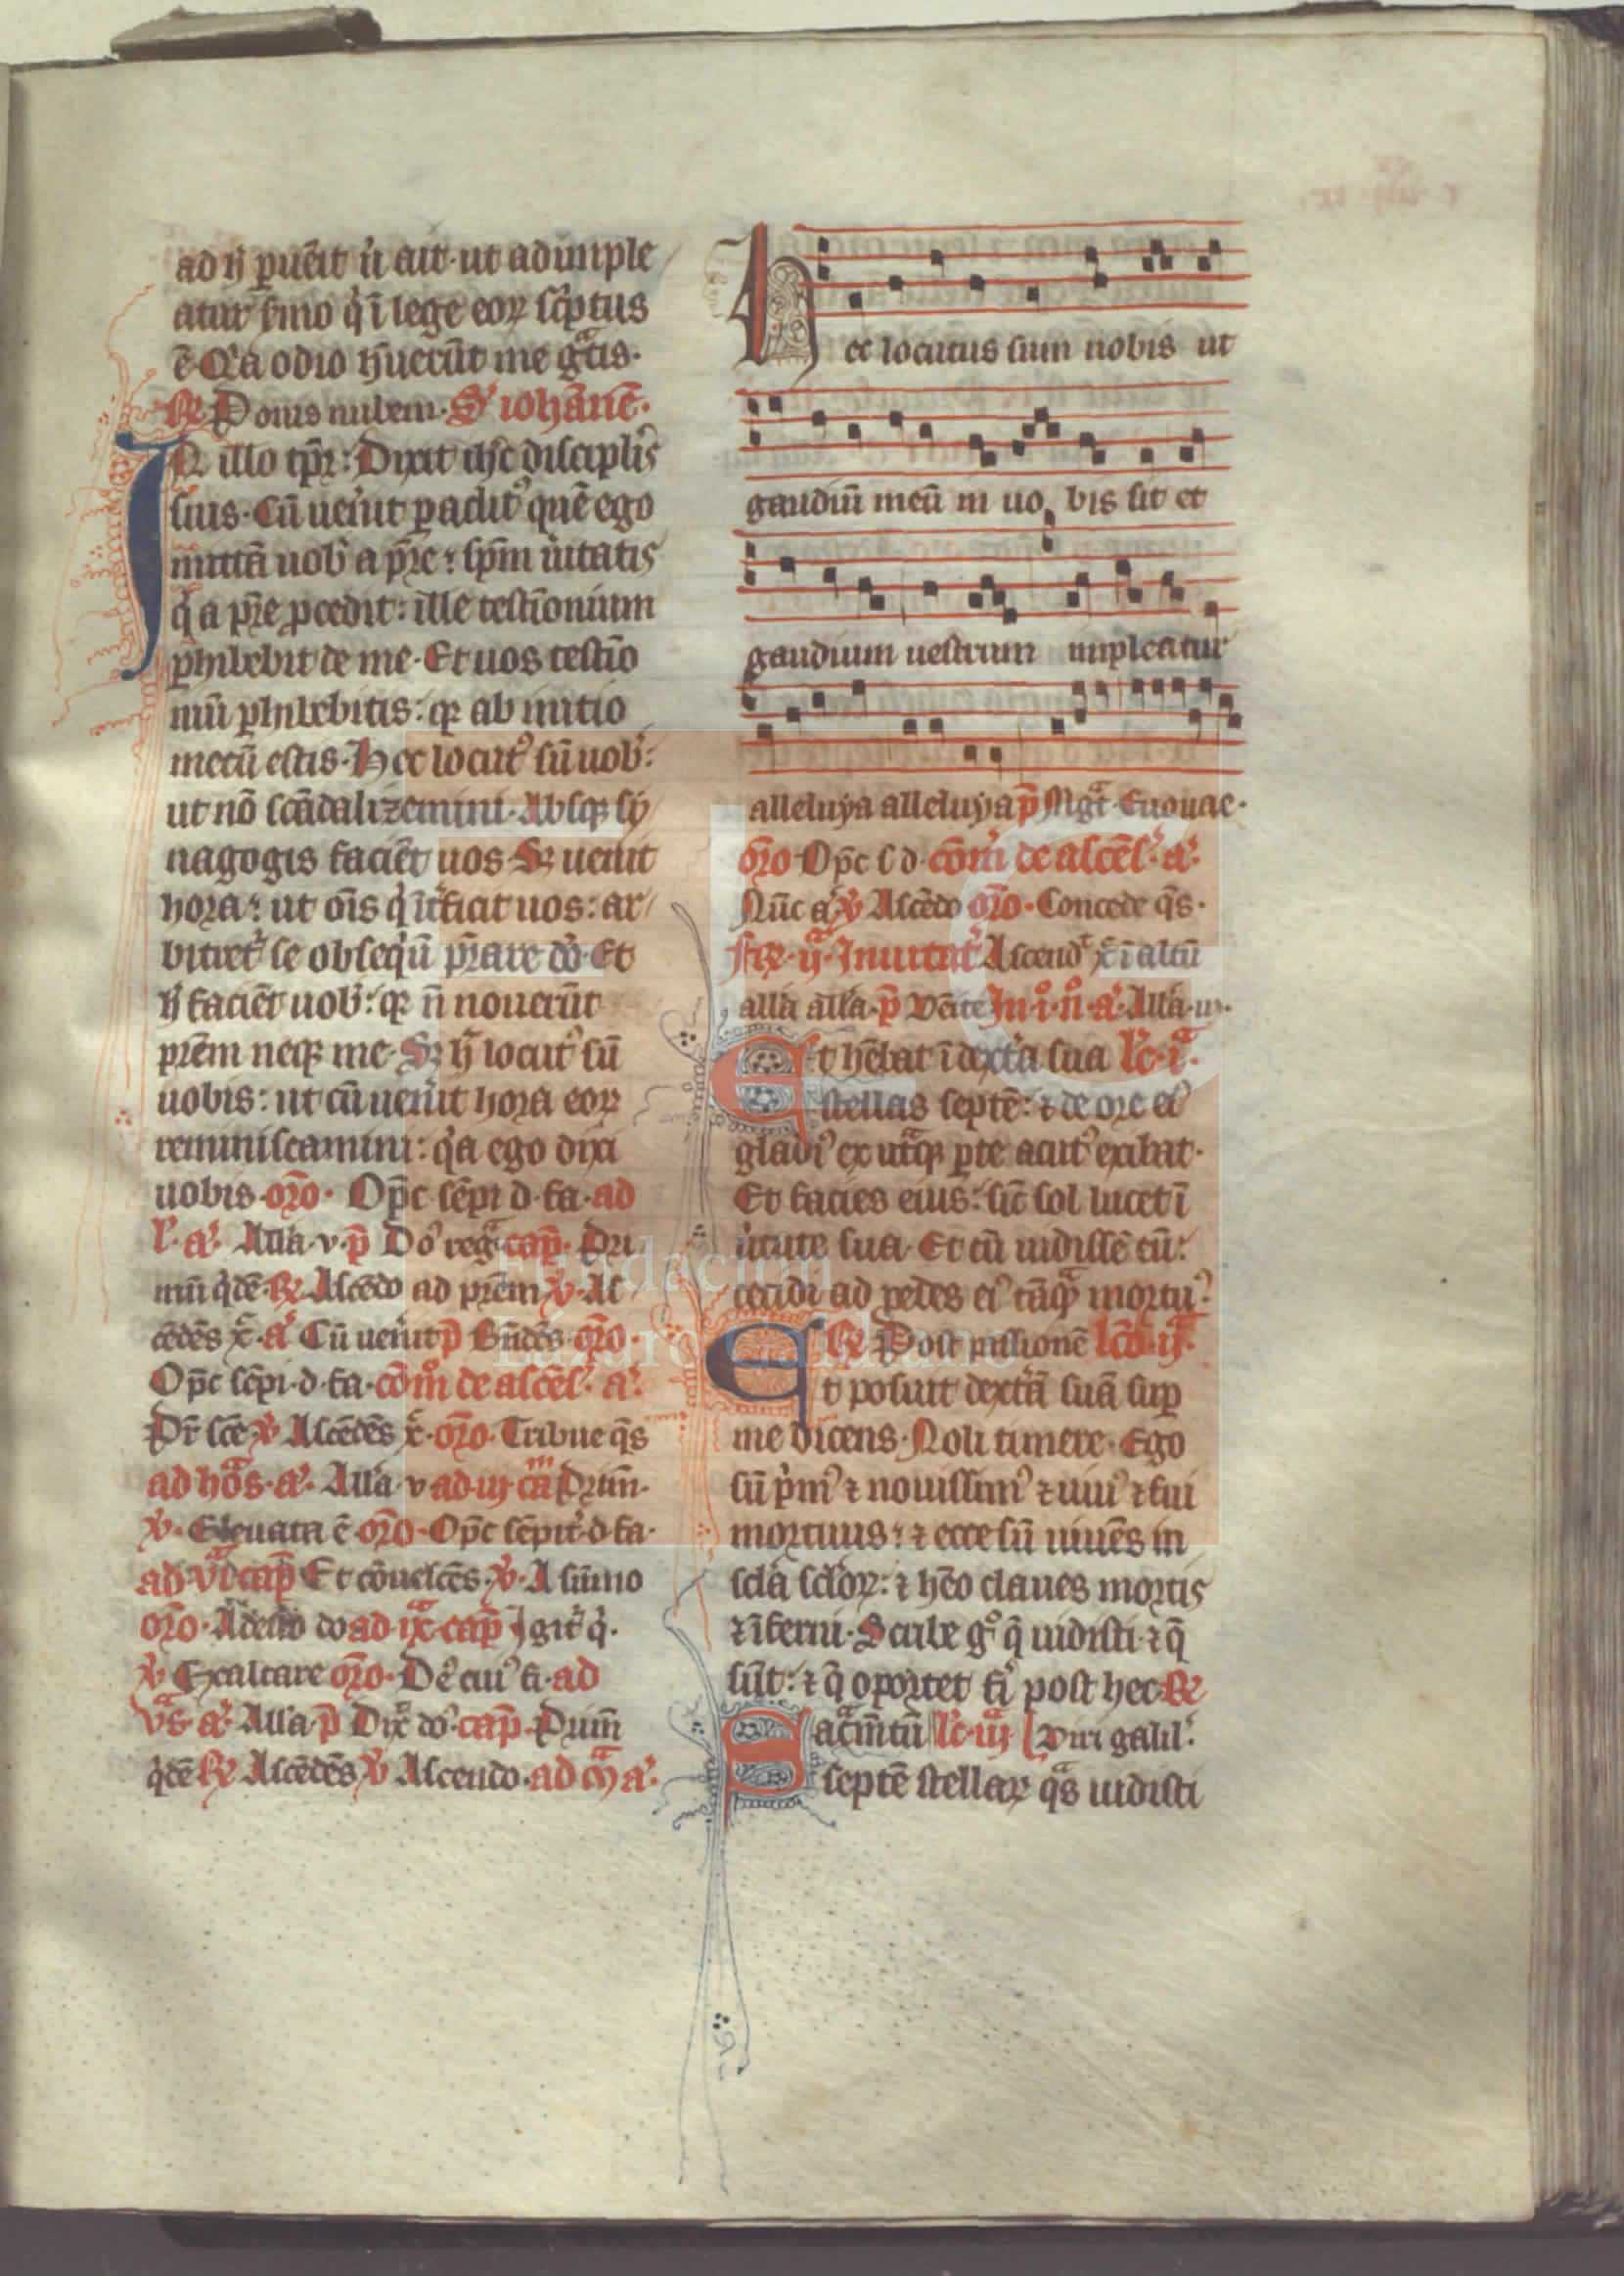 ad h̄ ꝑuēit n̄ ait· ut adimple
atur ẜmo q̇ ī lege eoꝝ sc̓ptus
ē· Qͥa odio h̄uerūt me gͣtis·
℟ Ponis nubem· S' ioħannē·
IN illo tp̄r: Dixit ihc̄ discipl̓is
suis· Cū uen̓it paclit᷒ quē ego
mittā uob̓ a pr̄e: sp̄m u̓itatis
q̇ a pr̄e ꝓcedit: ille testīonium
ꝑhibebit de me· Et uos testīo
niū ꝑhibebitis: qꝛ ab initio
mecū estis· Hec locut᷒ sū uob̓:
ut nō scādalizemini· Absqꝫ sy
nagogis faciēt uos· Sꝫ uenit
hora: ut oīs q̇ īt̓ficit uos: ar
bitret̓ se obseq̇ū p̄stare dō· Et
h̄ faciēt uob̓: qꝛ n̄ nouerūt
pr̄em neqꝫ me· Sꝫ h̄ locut᷒ sū
uobis: ut cū uen̓it hora eoꝝ
reminiscamini: qͥa ego dixi
uobis· or̄o· Op̄c sēpi d· fa· ad
l'· a'· All̓a· v· p̄ Do᷒ regͣ cap̄· Pri
mū q̇dē· ℟ Ascēdo ad pr̄em ℣· As
cēdēs xͨ· a' Cū uen̓it p̄ Bn̄dēs· or̄o·
Op̄c sēpi· d· fa· cōm̊ de ascēs᷒· a'·
Pr̄ sc̄e ℣ Ascēdēs xͨ· or̄o· Tribue q̄s
ad hoͣs· a'· All̓a· v ad· iij· cāᵐ Prim̄·
℣· Eleuata ē· or̄o· Op̄c sēpit̓· d· fa·
ad vıͣ cap̄ Et cōuescēs· ℣· A sūmo
or̄o· Adesto do ad ixͣ· cap̄ Igit̓ q̇·
℣ Exaltare or̄o· De᷒ cui᷒ fi· ad
vͣs· a'· All̓a· p̄ Dix̊ do᷒· cap̄· Prim̄
q̇dē ℟ Ascēdēs ℣ Ascendo· ad m̄ͣ a'·
Hec locutus sum uobis ut
gaudiū meū in uo bis sit et
gaudium uestrum impleatur
alleluya alleluya p̄ Mgͣt· Euouae·
or̄o Op̄c s d· cōm̊ de ascēs᷒· a'·
Nūc a' ℣ Ascēdo or̄o· Concede q̄s·
fr̄e· ij·ͣ Inuitat᷒ Ascend' xͨ ī altū
all̓a all̓a· p̄ Vēite In· i·̊ n̊· a'· All̓a· iij·
Et hēbat ī dext̓a sua lc̄· iͣ·
stellas septē: ⁊ de ore ei᷒
gladi᷒ ex utͣqꝫ ꝑte acut᷒ exibat·
Et facies eius: sic̄ sol lucet ī
u̓tute sua· Et cū uidissē eū:
cecidi ad pedes ei᷒ tāqͣ mortu᷒·
℟ Post passionē lc̄o· ijͣ·
Et posuit dext̓ā suā suꝑ
me dicens· Noli timere· Ego
sū p̓m᷒ ⁊ nouissim᷒ ⁊ uiu᷒ ⁊ fui
mortuus: ⁊ ecce sū uiuēs in
sc̄la sc̄loꝝ: ⁊ hēo claues mortis
⁊ īferni· Scribe gͦ q̄ uidisti· ⁊ q̄
sūt: ⁊ q̄ oportet fi᷒ post hec· ℟
Sacͣm̄tū lc̄· iijͣ Viri galil᷒·
septē stellaꝝ qͣs uidisti